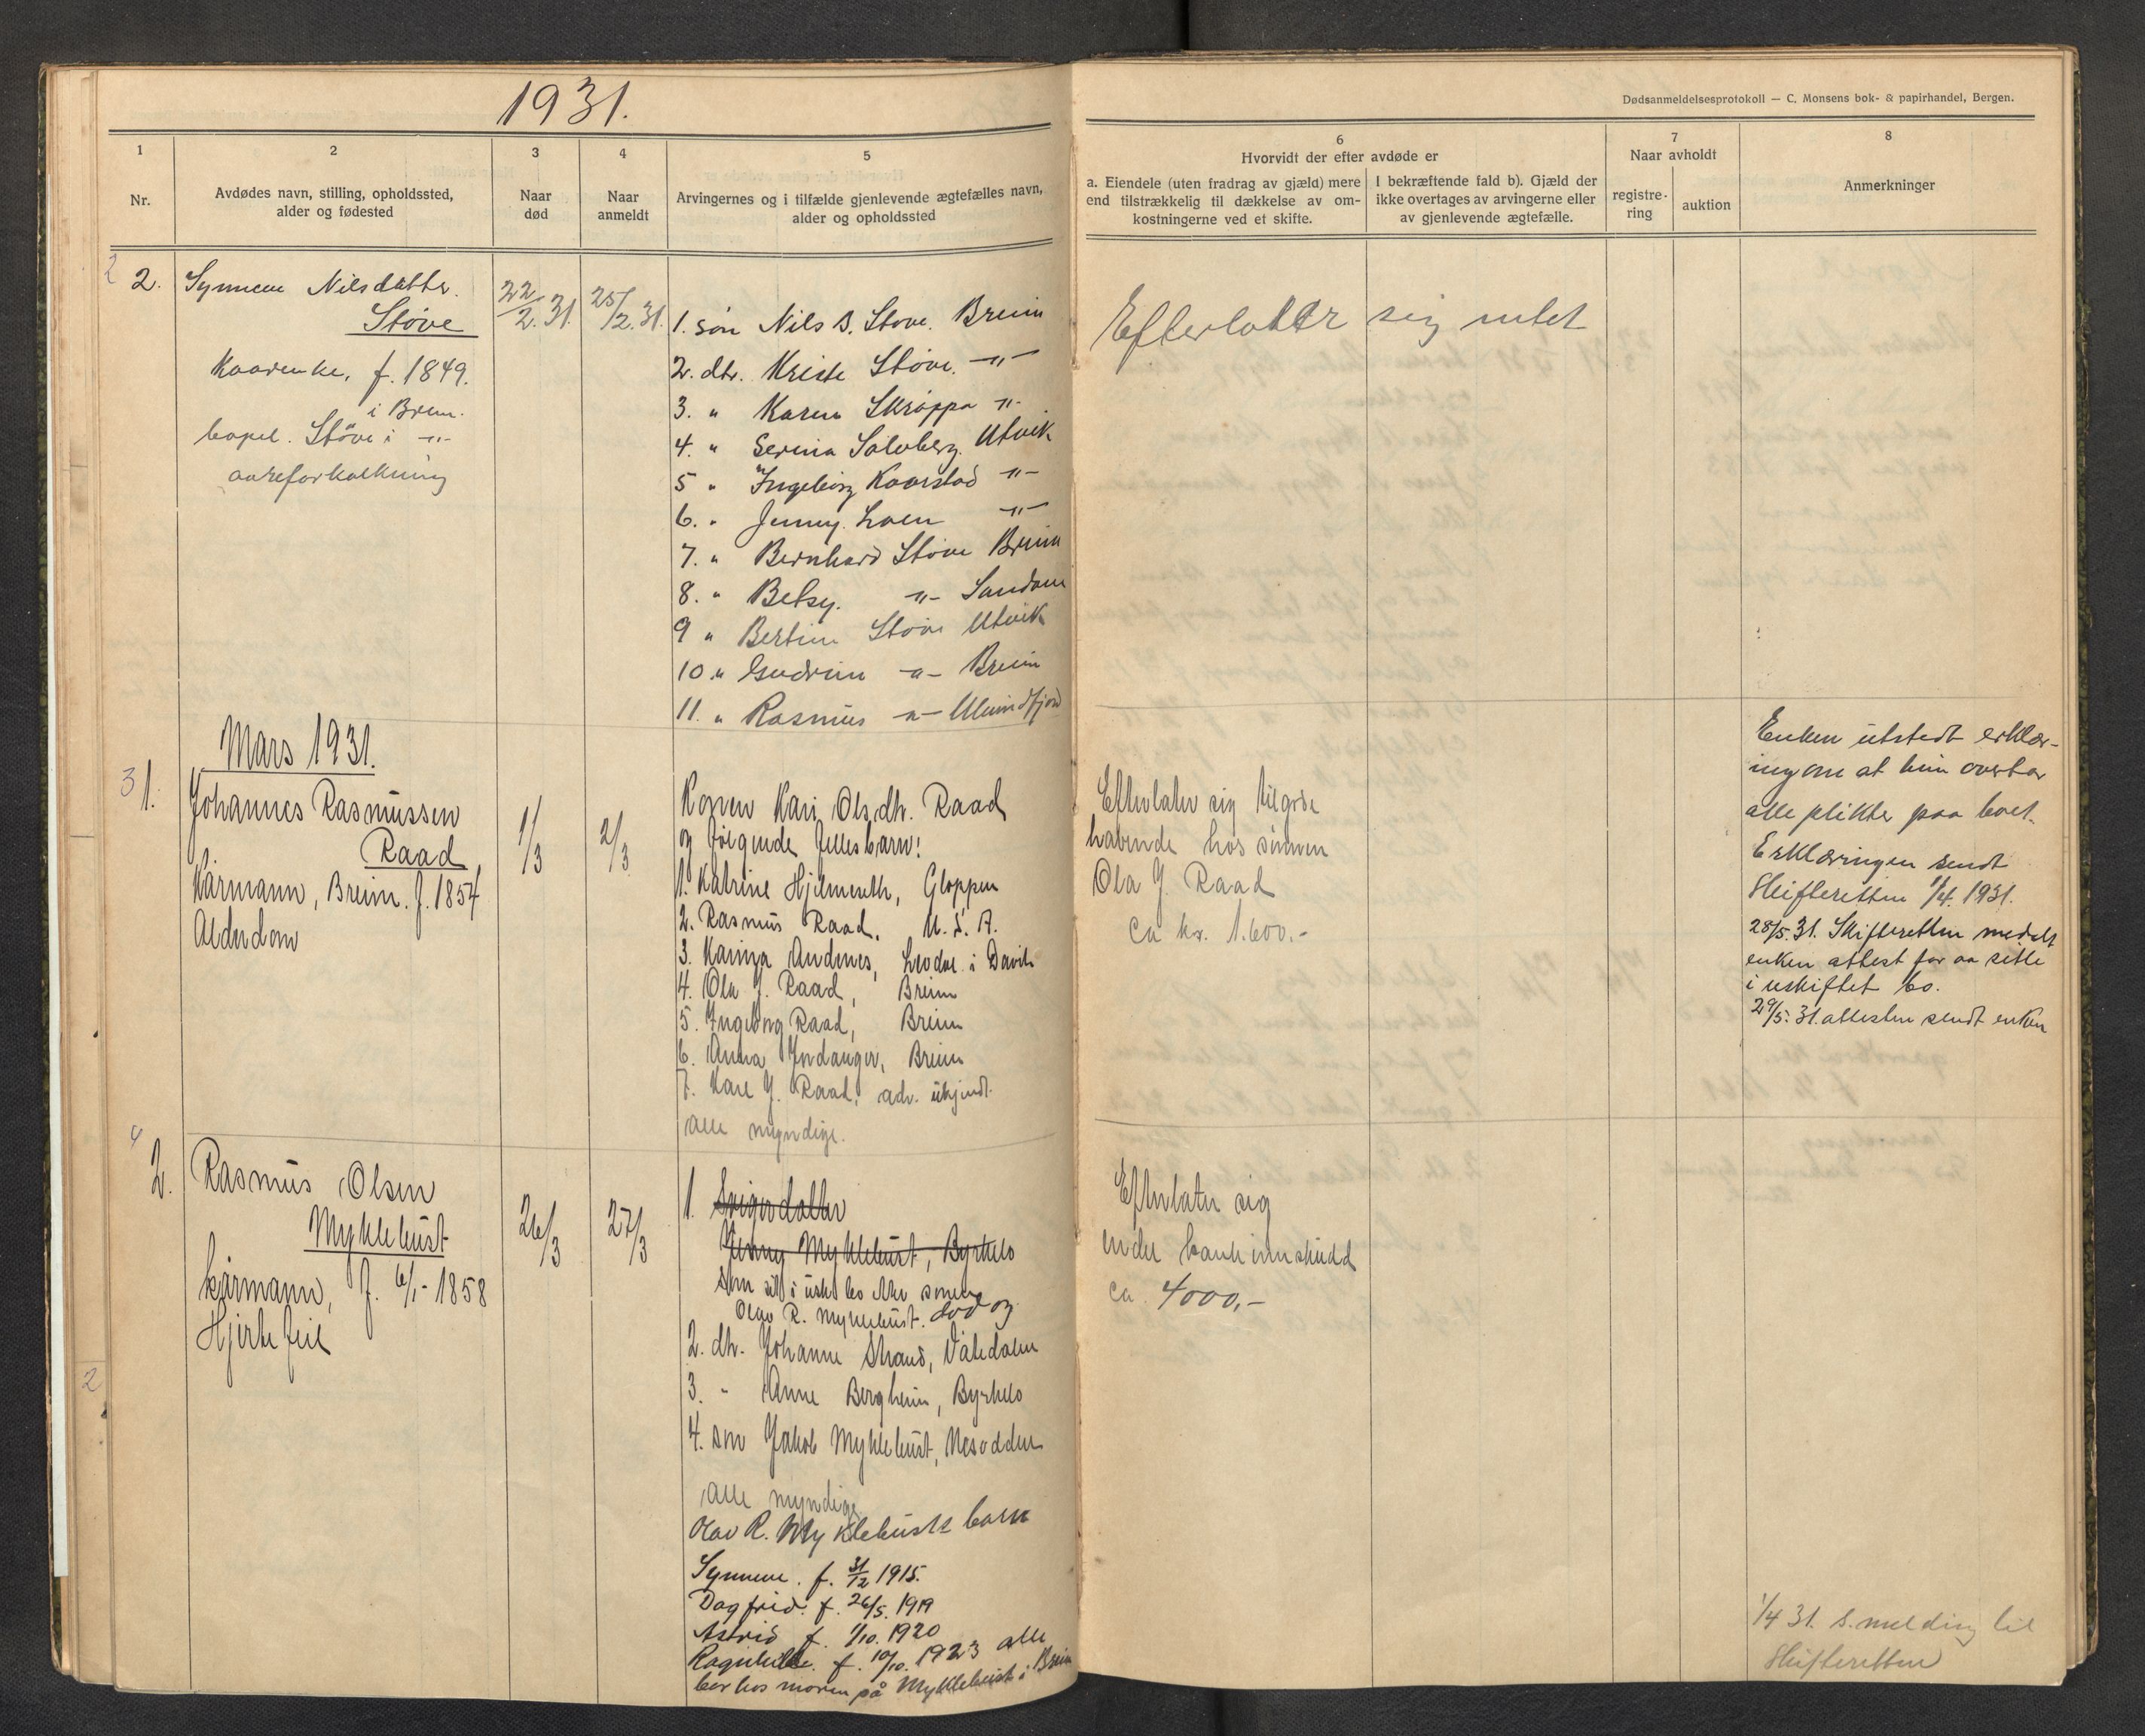 1931.
Dødsanmeldelsesprotokoll — C. Monsens bok- & papirhandel, Bergen.
1
Nr.
2
Avdødes navn, stilling, opholdssted,
alder og fødested
3
Naar
død
4
Naar
anmeldt
5
Arvingernes og i tilfælde gjenlevende ægtefælles navn,
alder og opholdssted
6
Hvorvidt der efter avdøde er
a. Eiendele (uten fradrag av gjæld) mere
end tilstrækkelig til dækkelse av om-
kostningerne ved et skifte.
I bekræftende fald b). Gjæld der
ikke overtages av arvingerne eller
av gjenlevende ægtefælle.
7
Naar avholdt
registre-
ring
auktion
8
Anmerkninger
2
2.
Synneve Nilsdatter.
Støve
Kaarenke, f. 1849.
i Breim.
bopel. Støve i -"-
aareforkalkning
22/2. 31.
25/2. 31.
1. søn Nils B. Støve. Breim
2. dtr. Kriste Støve. -"-
3. " Karen Skrøppa -"-
4. " Serina Solvberg. Utvik
5 " Ingeborg Kaarstad -"-
6. " Jenny. Loen -"-
7. " Bernhard Støve Breim
8. " Betsy. -"- Sandane
9 " Bertine Støve Utvik
10 " Gudrun -"- Breim
11. " Rasmus -"-
Efterlater sig intet
Mars 1931.
3
1.
Johannes Rasmussen
Raad
Kårmann, Breim. f. 1854
Alderdom
1/3
2/3
Konen Kari Olsdtr. Raad
og følgende fellesbarn:
1. Katrine Hjelmeseth, Gloppen
2. Rasmus Raad, U. S. A.
3. Karina Andenes, i Davik
4. Ola J. Raad, Breim
5. Ingeborg Raad, Breim
6. Anna Indanger, Breim
7. Kare J. Raad, adr. ukjendt.
Alle myndige.
Efterlater sig tilgode
havende hos sønnen
Ola J. Raad
ca kr. 1.600.-
Enken utstedt erklær-
ing om at hun overtar
alle plikter paa boet.
Erklæringen sendt
Skifteretten 1/4. 1931.
28/5. 31. Skifteretten meddelt
enken attest for aa sitte
i uskiftet bo.
29/5. 31. attesten sendt enken
4
2.
Rasmus Olsen
Myklebust
kårmann, f. 6/1- 1858
Hjertefeil
26/3
27/3
1. Svigerdatter
Jenny Myklebust, Byrkjelo
som sit i uskt bo etter sønnen
Olav R. Myklebust. død og
2. dtr. Johanne Strand, Våtedalen
3. " Anne Bergheim, Byrkjelo
4. søn Jakob Myklebust, Nesodden
Alle myndige
Olav R. Myklebusts barn
Synneve. f. 31/12 1915.
Dagfrid. f. 26/5. 1919
Astrid f. 1/10. 1920
Ragnhilde. f. 10/10. 1923 alle
bor hos moren på Myklebust i Breim
Efterlater sig
under bankinnskudd
ca. 4000,-
1/4 31. S. melding til
Skifteretten
2